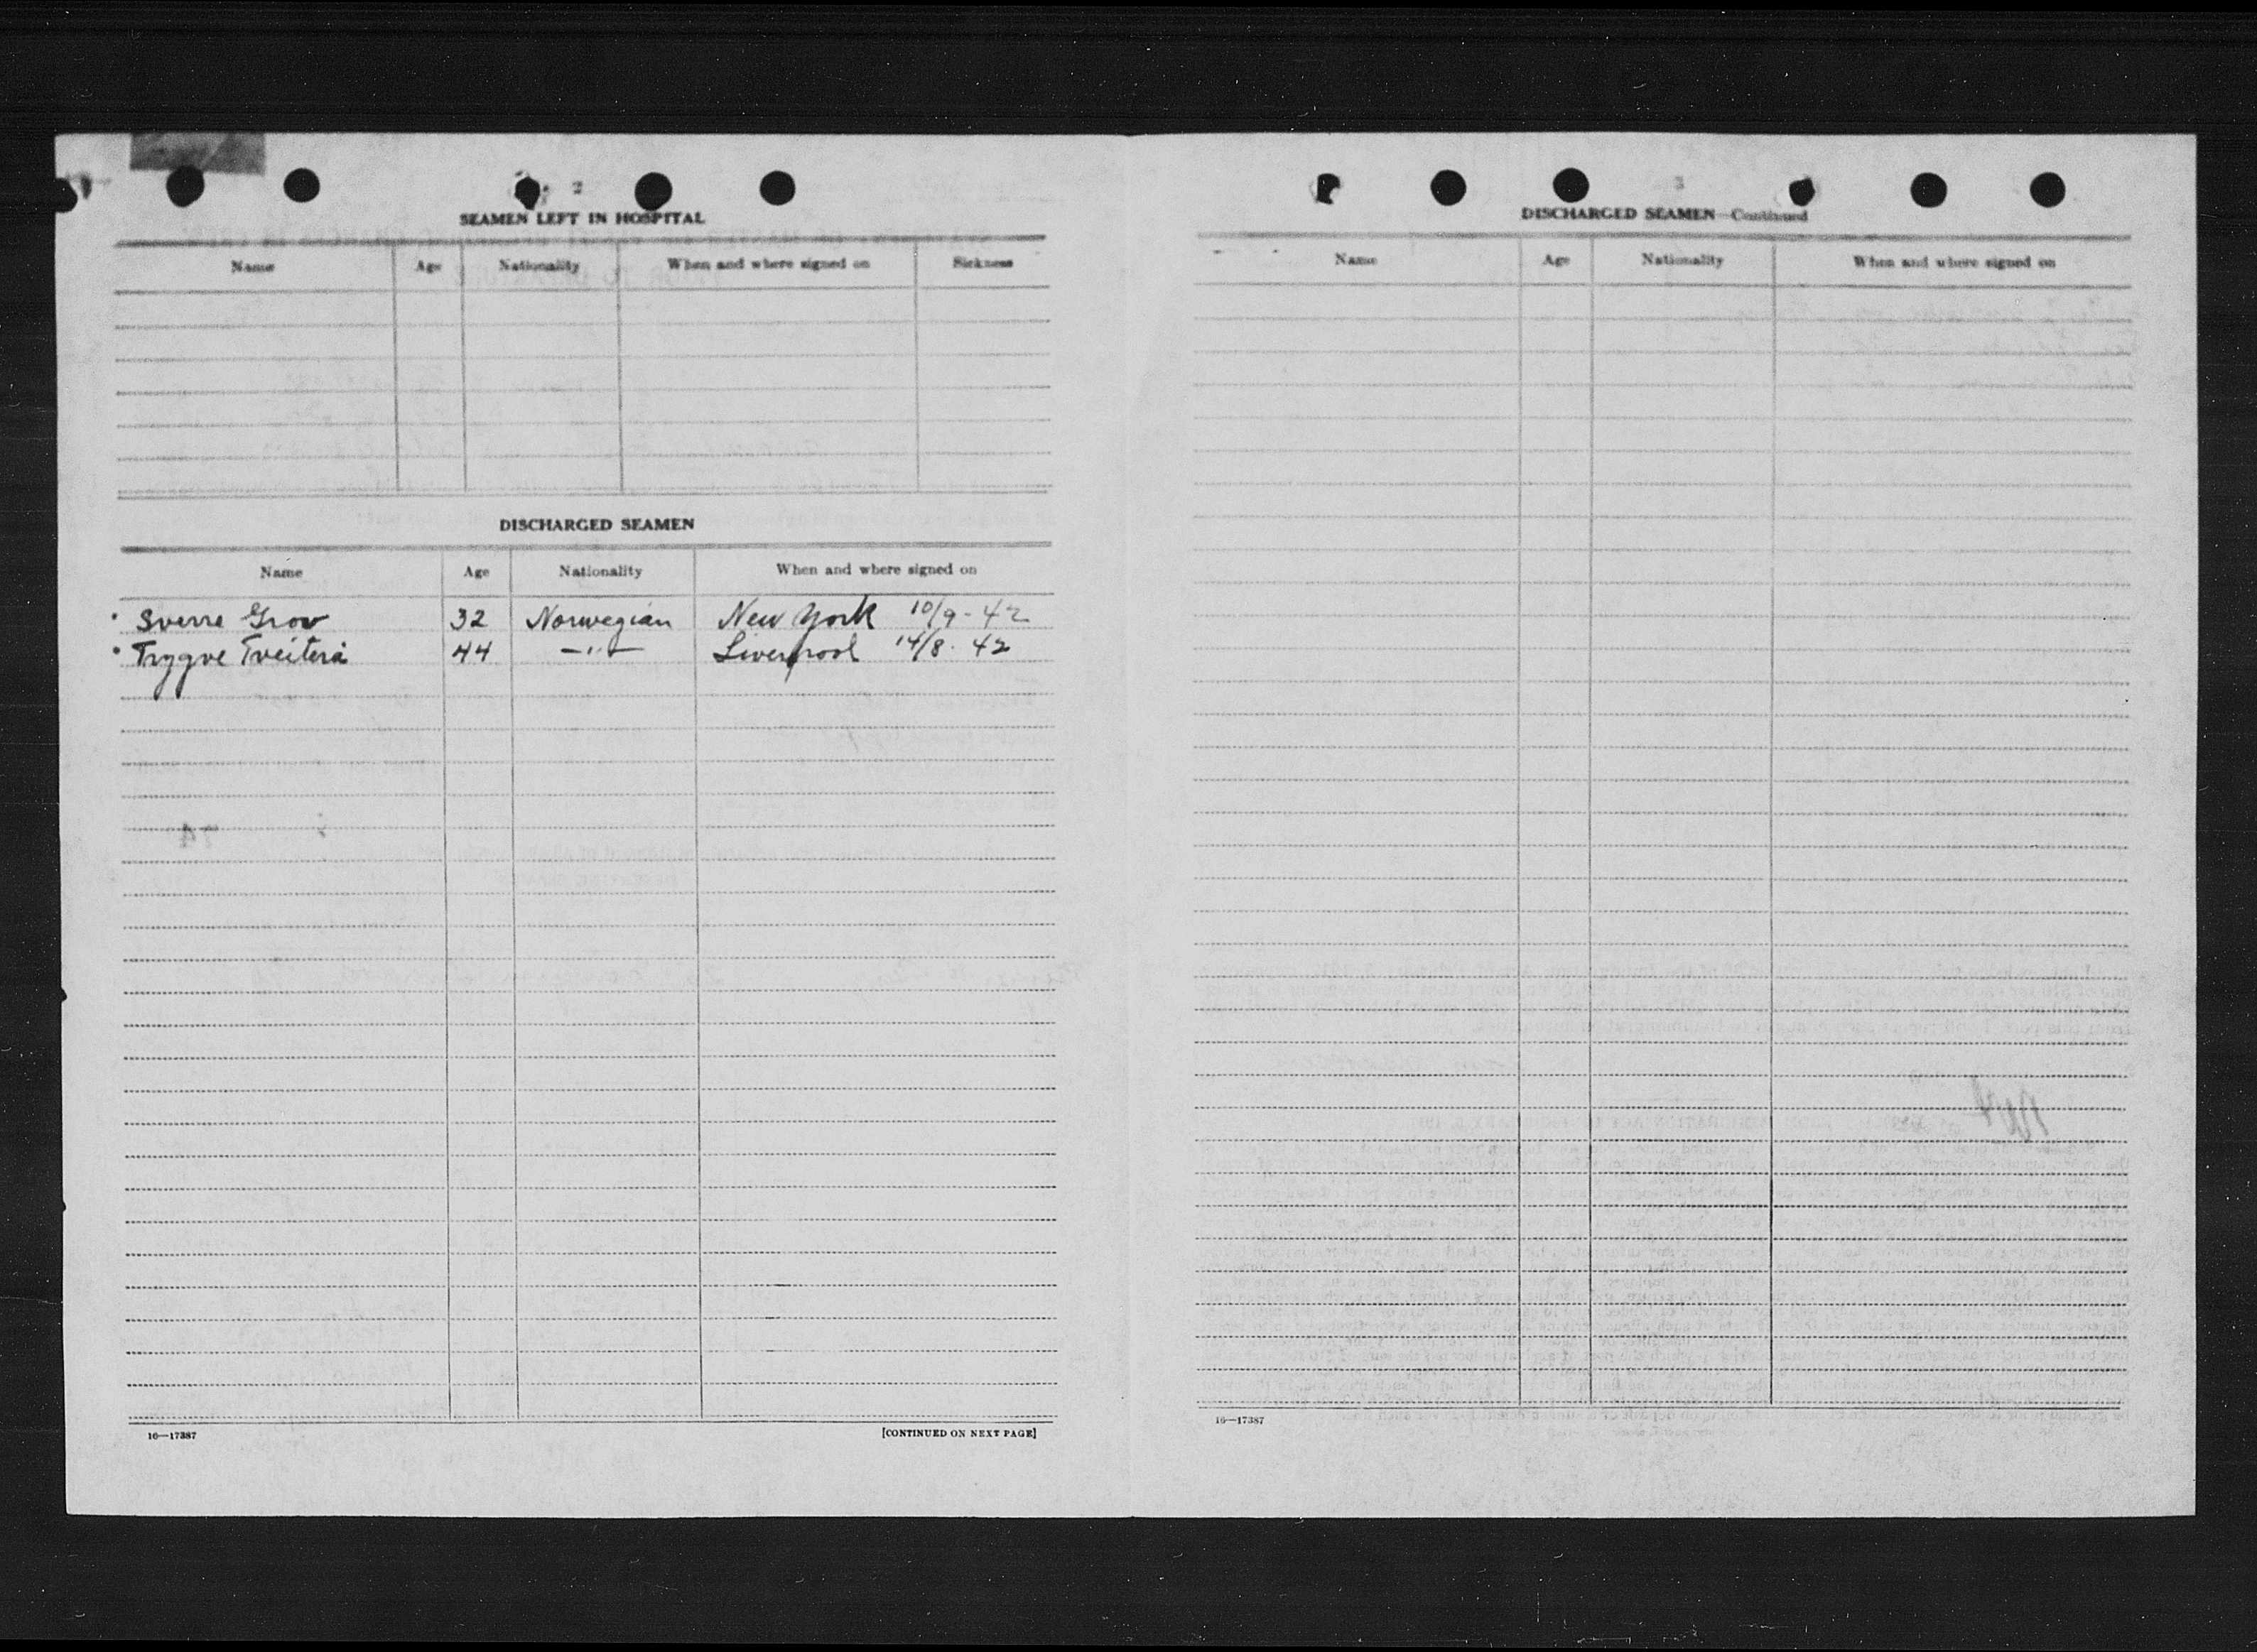 2
SEAMEN LEFT IN HOSPITAL
Name Age Nationality When and where signed on Sickness
DISCHARGED SEAMEN
Name Age Nationality When and where signed on
Sverre Grov 32 Norwegian New York 10/9-42
Trygve Tveiterå 44 —"— Liverpool 14/8-42
16—17387 [CONTINUED ON NEXT PAGE]
3
DISCHARGED SEAMEN—Continued
Name Age Nationality When and where signed on
16—17387